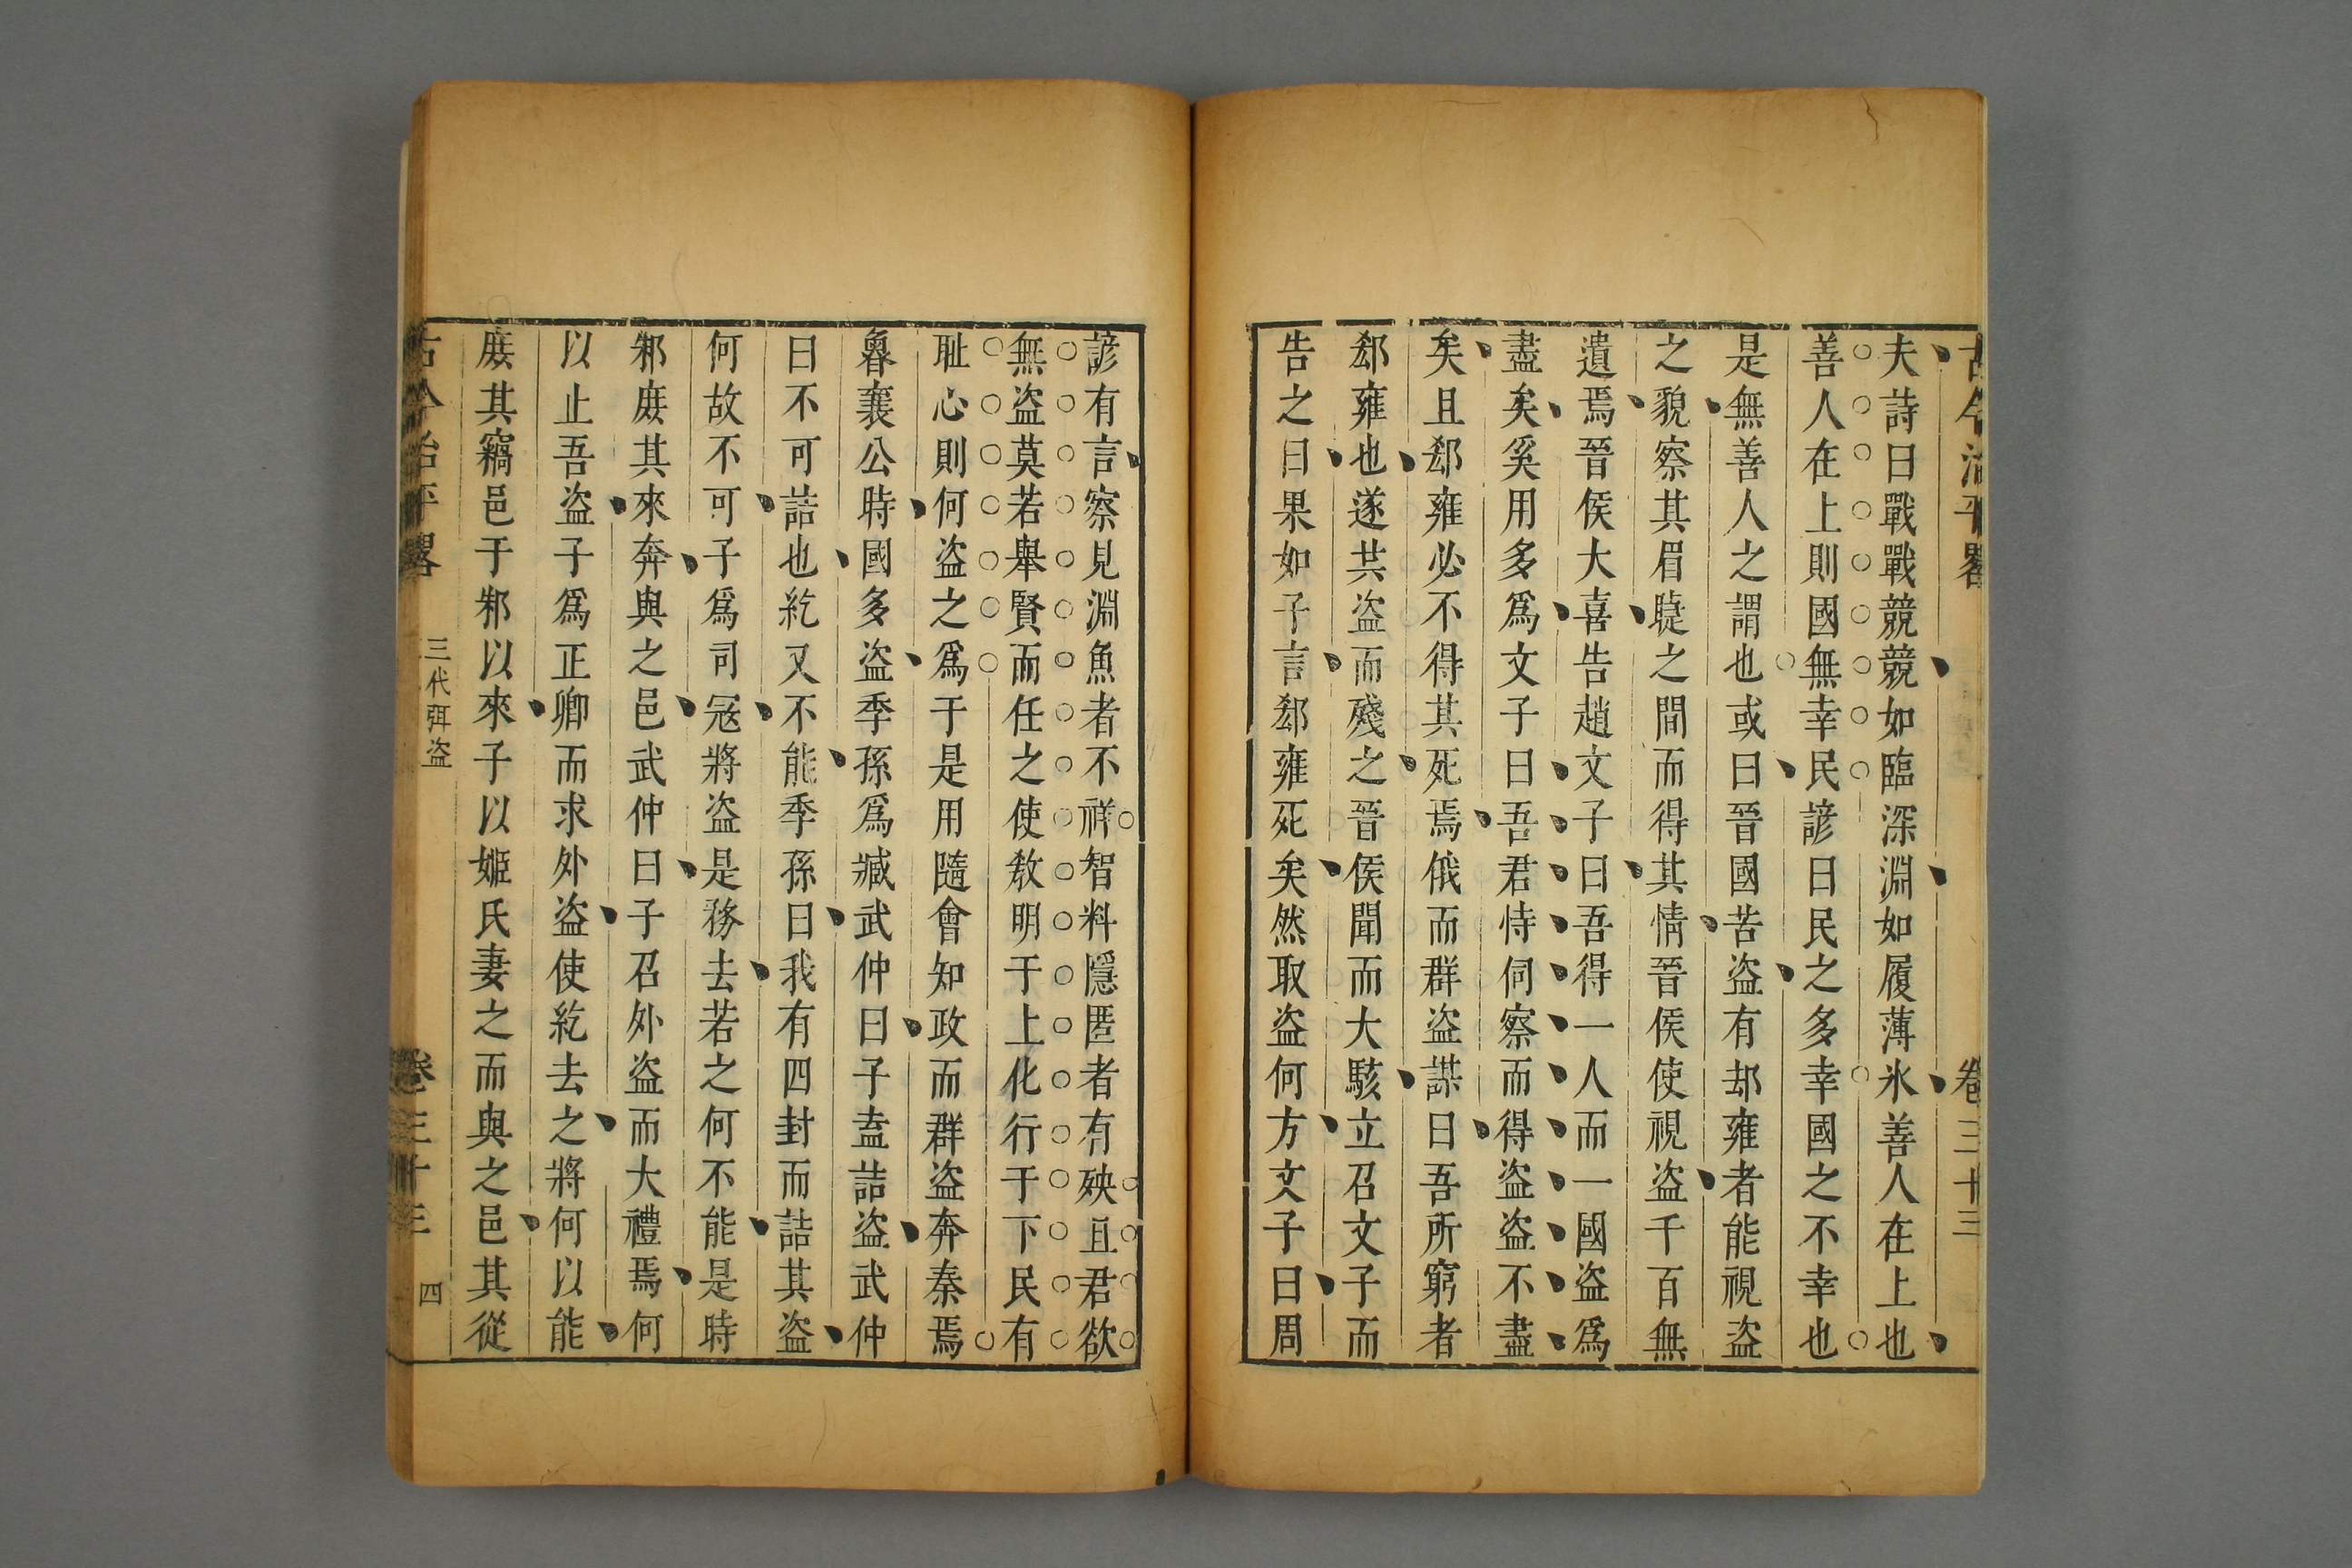 古今治平畧 卷三十三
夫詩曰戰戰兢兢如臨深淵如履薄氷善人在上也
善人在上則國無幸民諺曰民之多幸國之不幸也
是無善人之謂也或曰晉國苦盜有郄雍者能視盜
之貌察其眉睫之間而得其情晉侯使視盜千百無
遺焉晉侯大喜告趙文子曰吾得一人而一國盜爲
盡矣奚用多爲文子曰吾君恃伺察而得盜盜不盡
矣且郄雍必不得其死焉俄而群盜謀曰吾所窮者
郄雍也遂共盜而殘之晉侯聞而大駭立召文子而
告之曰果如子言郄雍死矣然取盜何方文子曰周
諺有言察見淵魚者不祥智料隱匿者有殃且君欲
無盜莫若舉賢而任之使敎明于上化行于下民有
耻心則何盜之爲于是用隨會知政而群盜奔秦焉
魯襄公時國多盜季孫爲臧武仲曰子盍詰盜武仲
曰不可詰也紇又不能季孫曰我有四封而詰其盜
何故不可子爲司冦將盜是務去若之何不能是時
邾庶其來奔與之邑武仲曰子召外盜而大禮焉何
以止吾盜子爲正卿而求外盜使紇去之將何以能
庶其竊邑于邾以來子以姬氏妻之而與之邑其從
古今治平畧 三代弭盜 卷三十三 四